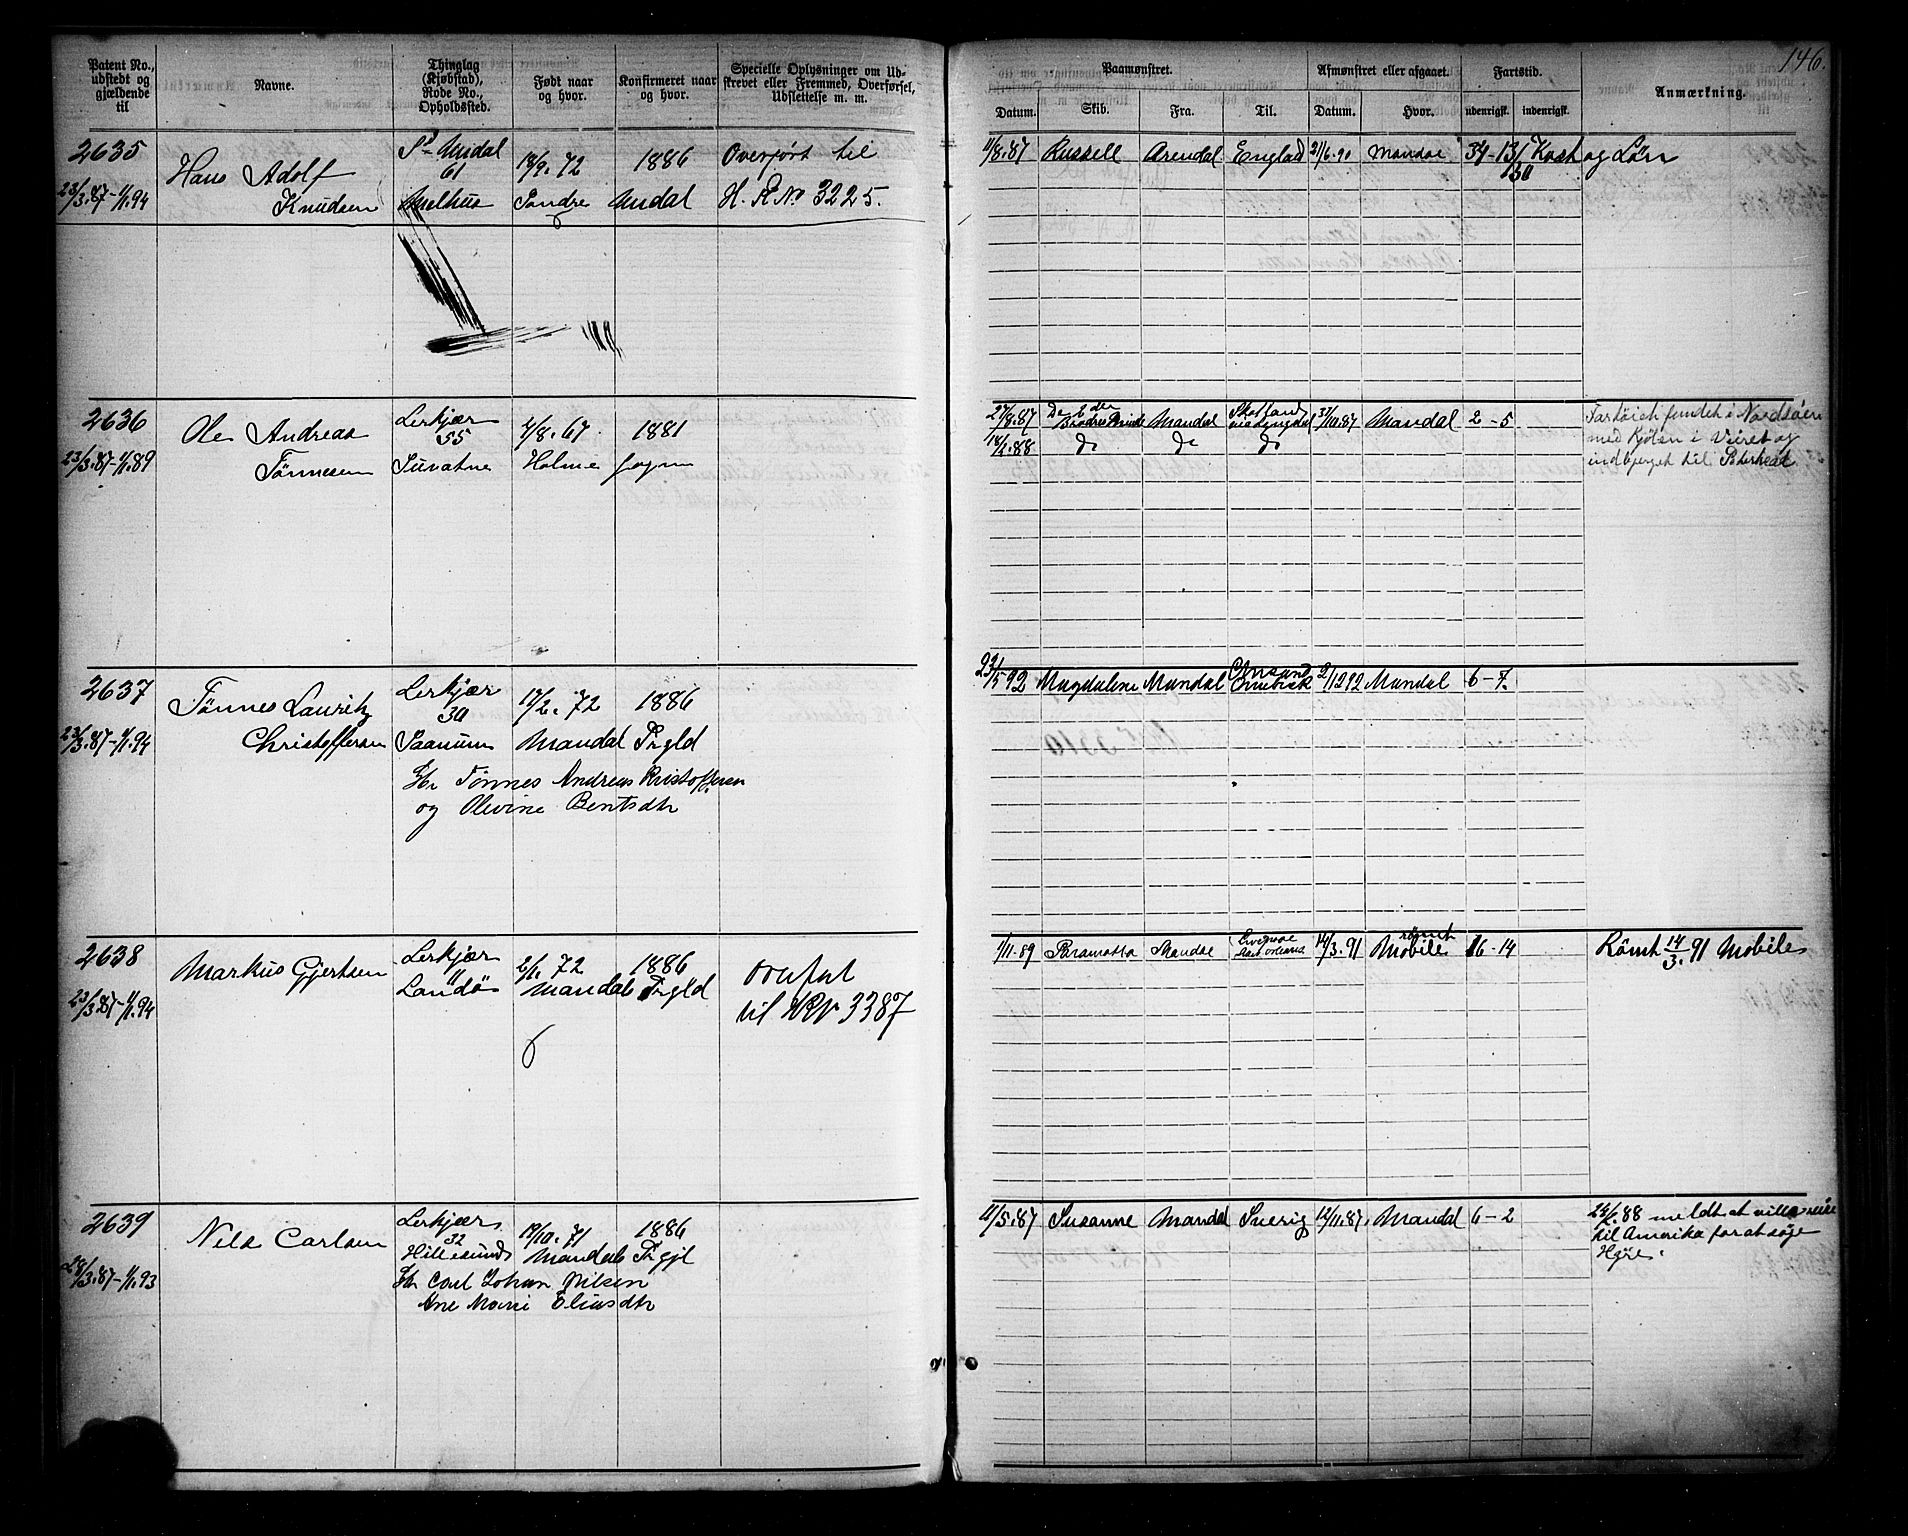 146.
Patent No., udstedt og gjældende til
Navne.
Thinglag (Kjøbstad), Rode No., Opholdssted.
Født naar og hvor.
Konfirmeret naar og hvor.
Specielle Oplysninger om Udskrevet eller Fremmed, Overførsel, Udslettelse m. m.
Paamønstret.
Afmønstret eller afgaaet.
Fartstid.
Anmærkning.
Datum. Skib. Fra. Til. Datum. Hvor. udenrigsk. indenrigsk.
2635 Hans Adolf Sd. Undal 61 18/9. 72 1886 Overført til
23/3.87-1/1.94 Knudsen Melhus Søndre Undal H. R No 3225.
11/8.87 Russell Arendal England 21/6.90 Mandal 34-13 Kost og Løn
130
2636 Ole Andreas Lerkjær 55 4/8. 67. 1881
23/3.87-1/1.89 Tønnesen Holme sogn
27/8.87 Mandal Skotland 31/10.87 Mandal 2-5 Fartøiet fundet i Nordsøen
18/2.88 do do do med Kjølen i Veiret og
indbjerget til Peterhead
2637 Tønnes Lauritz Lerkjær 30 17/2. 72 1886
23/3.87-1/1.94 Christoffersen Saanum Mandal Prgld
Fr Tønnes Andreas Kristoffersen
og Olevine Bentsdtr
23/5 92 Magdalene Mandal 2/12 92 Mandal 6-7.
2638 Markus Gjertsen Lerkjær 11 2/1. 72 1886 overført
23/3.87-1/1.94 Landø Mandals Prgld til HRN 3387
1/11.89 Paramatta Mandal 14/3.91 rømt Mobile 16-14 Rømt 14/3. 91 Mobile
2639 Nils Carlsen Lerkjær 32 19/10. 71 1886
28/3.87-1/1.93 Hillesund Mandals Prgjl
Fr Carl Johan Nilsen
Ane Marie Eliasdtr
11/5.87 Susanne Mandal Sverig 12/11.87. Mandal 6-2 24/2.88 meldt at ville reise
til Amerika for at søge
Hyre.